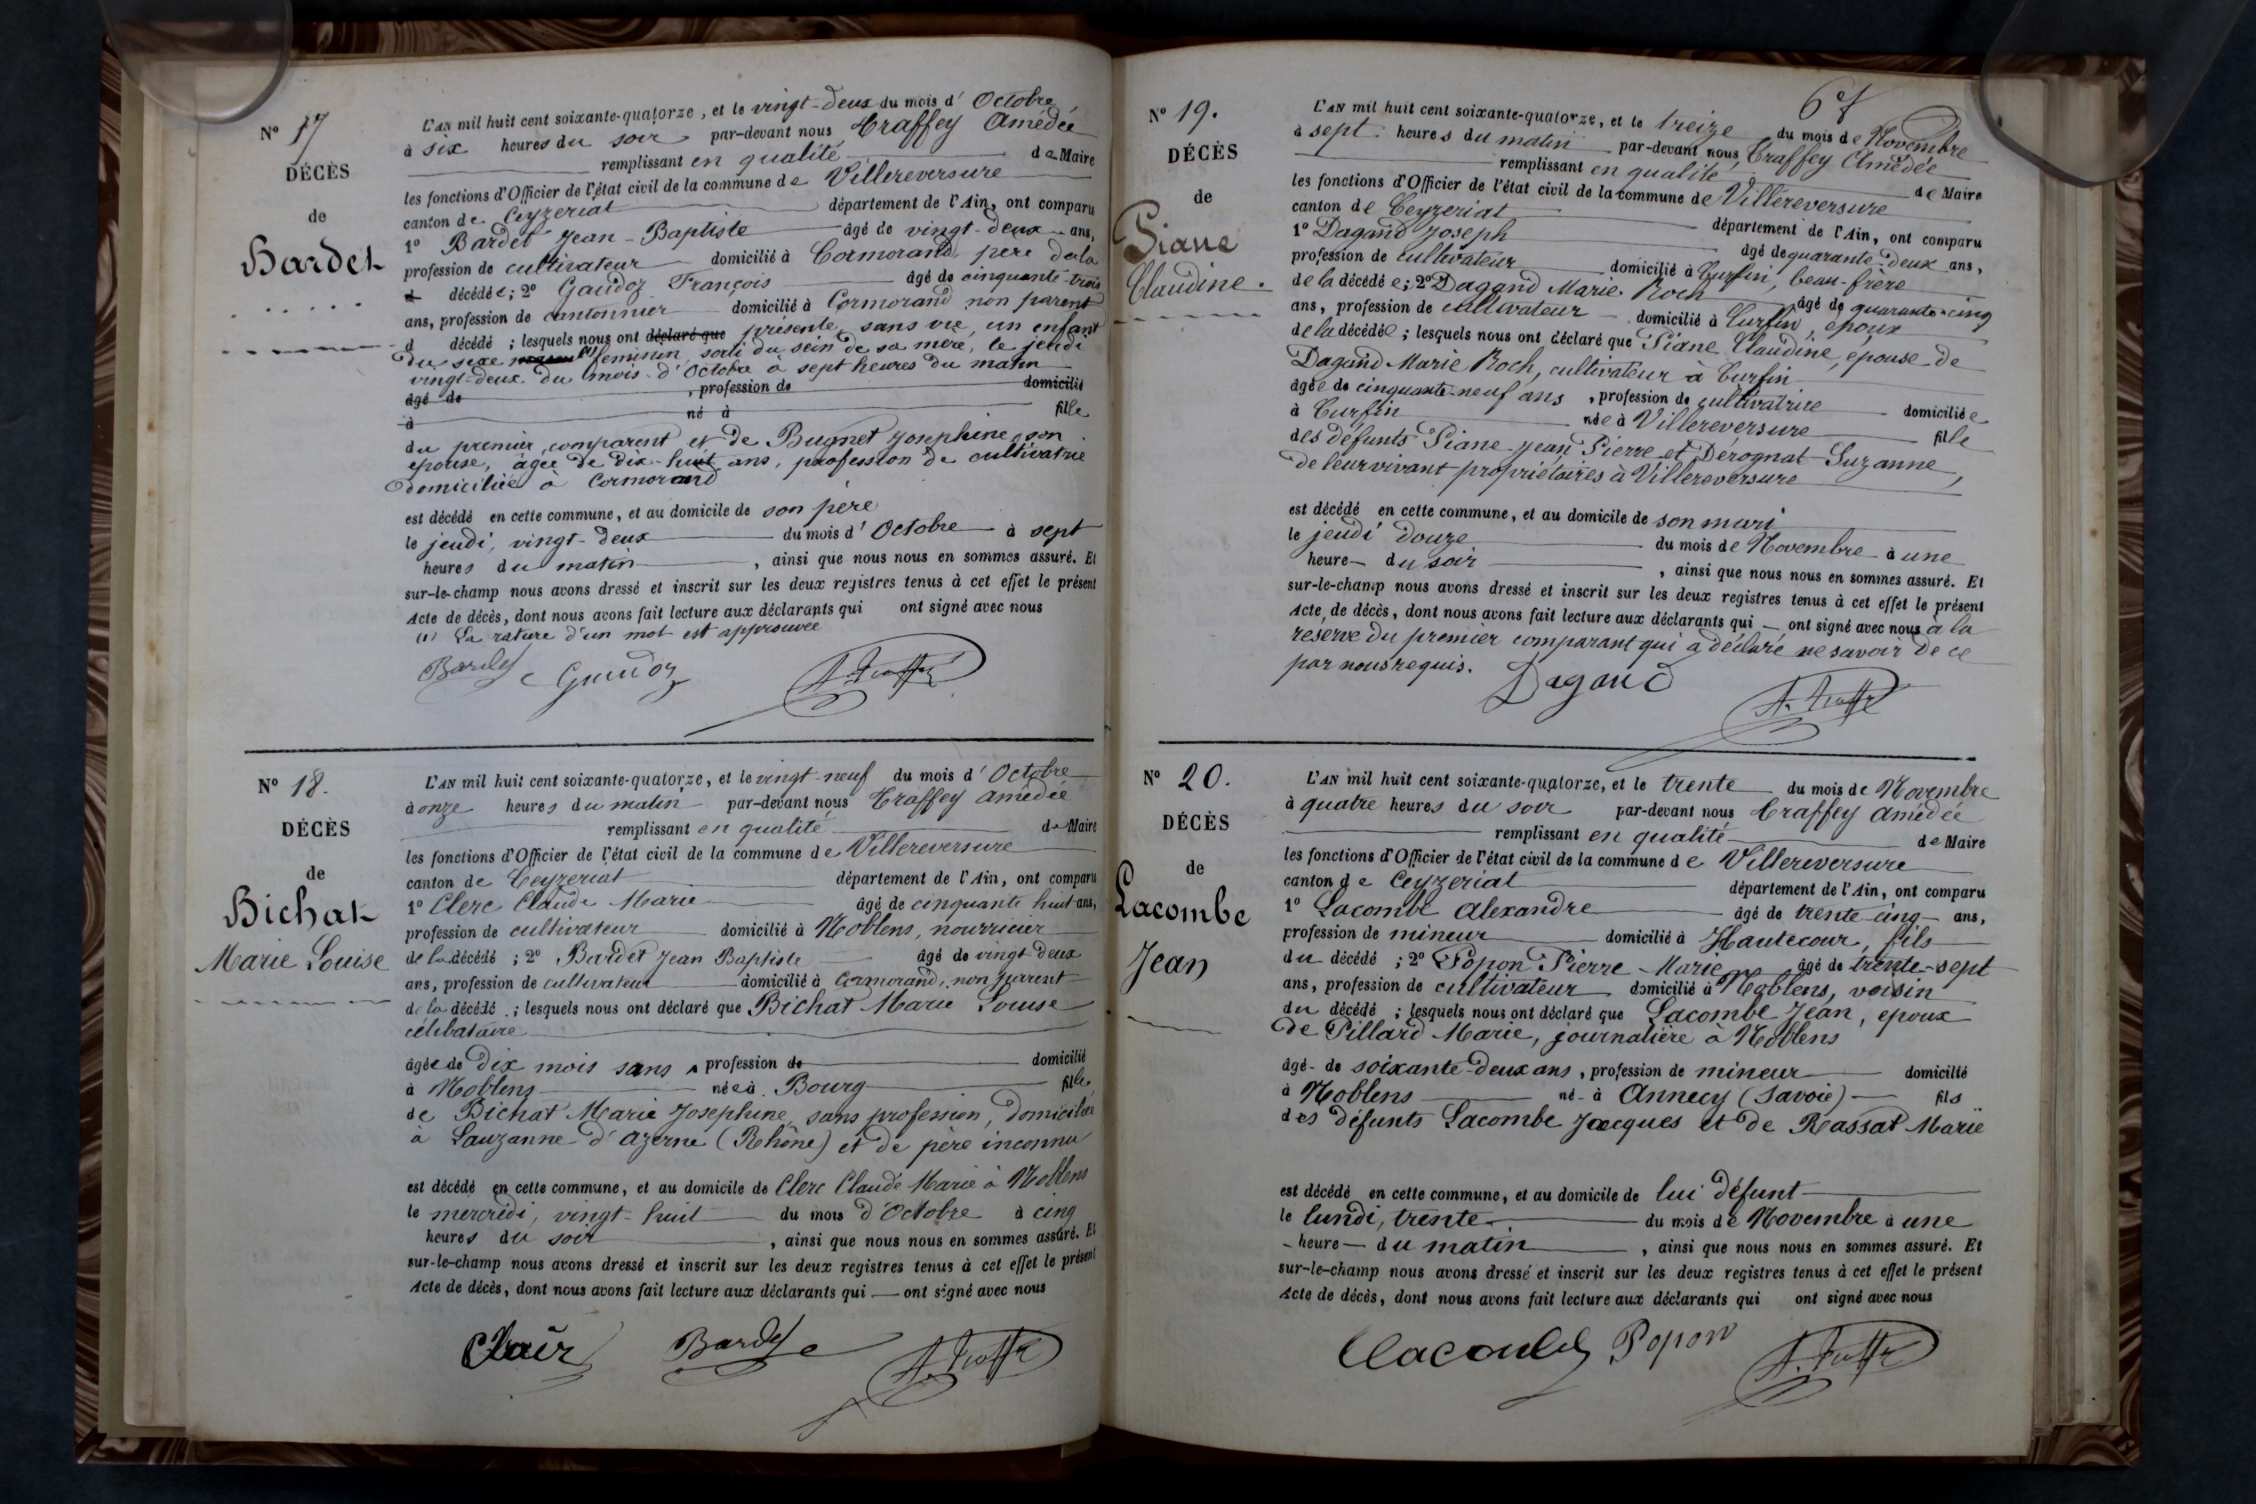 N° 17
DÉCÈS
de
Bardet
L'AN mil huit cent soixante-quatorze, et le vingt-deux du mois d'Octobre
à six heures du soir par-devant nous Traffey Amédée
remplissant en qualité de Maire
les fonctions d'Officier de l'état civil de la commune de Villereversure
canton de Ceyzeriat département de l'Ain, ont comparu
1° Bardet Jean-Baptiste âgé de vingt-deux ans,
profession de cultivateur domicilié à Cormorand, père de la
décédée; 2° Gaudoz François âgé de cinquante-trois
ans, profession de cantonnier domicilié à Cormorand non parent
d décédé; lesquels nous ont déclaré que présenté, sans vie, un enfant
du sexe (1) féminin, sorti du sein de sa mère, le jeudi
vingt-deux du mois d'Octobre à sept heures du matin
âgé de , profession de domicilié
à né à fille
du premier comparant et de Bugnet Josephine son
épouse, âgée de dix-huit ans, profession de cultivatrice
domiciliée à Cormorand
est décédé en cette commune, et au domicile de son père
le jeudi, vingt-deux du mois d'Octobre à sept
heures du matin , ainsi que nous nous en sommes assuré. Et
sur-le-champ nous avons dressé et inscrit sur les deux registres tenus à cet effet le présent
Acte de décès, dont nous avons fait lecture aux déclarants qui ont signé avec nous
(1) La rature d'un mot est approuvée
Bardet Gaudoz A. Traffey
N° 18.
DÉCÈS
de
Bichat
Marie Louise
L'AN mil huit cent soixante-quatorze, et le vingt-neuf du mois d'Octobre
à onze heures du matin par-devant nous Traffey Amédée
remplissant en qualité de Maire
les fonctions d'Officier de l'état civil de la commune de Villereversure
canton de Ceyzeriat département de l'Ain, ont comparu
1° Clerc Claude Marie âgé de cinquante huit ans,
profession de cultivateur domicilié à Noblens, nourricier
de la décédé; 2° Bardet Jean Baptiste âgé de vingt deux
ans, profession de cultivateur domicilié à Cormorand, non parent
de la décédé; lesquels nous ont déclaré que Bichat Marie Louise
célibataire
âgée de dix mois sans profession de domicilié
à Noblens née à Bourg fille
de Bichat Marie Josephine, sans profession, domiciliée
à Lauzanne d'Azerne (Rhône) et de père inconnu
est décédé en cette commune, et au domicile de Clerc Claude Marie à Noblens
le mercredi, vingt-huit du mois d'Octobre à cinq
heures du soir , ainsi que nous nous en sommes assuré. Et
sur-le-champ nous avons dressé et inscrit sur les deux registres tenus à cet effet le présent
Acte de décès, dont nous avons fait lecture aux déclarants qui ont signé avec nous
Clair Bardet A. Traffey
N° 19.
DÉCÈS
de
Piane
Claudine.
L'AN mil huit cent soixante-quatorze, et le treize du mois de Novembre
à sept heures du matin par-devant nous Traffey Amédée
remplissant en qualité de Maire
les fonctions d'Officier de l'état civil de la commune de Villereversure
canton de Ceyzeriat département de l'Ain, ont comparu
1° Dagand Joseph âgé de quarante-deux ans,
profession de cultivateur domicilié à Turfin, beau-frère
de la décédée; 2° Dagand Marie Roch âgé de quarante-cinq
ans, profession de cultivateur domicilié à Turfin, époux
de la décédée; lesquels nous ont déclaré que Piane Claudine, épouse de
Dagand Marie Roch, cultivateur à Turfin
âgée de cinquante-neuf ans, profession de cultivatrice domiciliée
à Turfin née à Villereversure fille
des défunts Piane Jean Pierre et Dérognat Suzanne,
de leur vivant propriétaires à Villereversure
est décédé en cette commune, et au domicile de son mari
le jeudi douze du mois de Novembre à une
heure du soir , ainsi que nous nous en sommes assuré. Et
sur-le-champ nous avons dressé et inscrit sur les deux registres tenus à cet effet le présent
Acte, de décès, dont nous avons fait lecture aux déclarants qui ont signé avec nous à la
réserve du premier comparant qui a déclaré ne savoir de ce
par nous requis.
Dagand A. Traffey
N° 20.
DÉCÈS
de
Lacombe
Jean
L'AN mil huit cent soixante-quatorze, et le trente du mois de Novembre
à quatre heures du soir par-devant nous Traffey Amédée
remplissant en qualité de Maire
les fonctions d'Officier de l'état civil de la commune de Villereversure
canton de Ceyzeriat département de l'Ain, ont comparu
1° Lacombe Alexandre âgé de trente-cinq ans,
profession de mineur domicilié à Hautecour, fils
du décédé; 2° Popon Pierre Marie âgé de trente-sept
ans, profession de cultivateur domicilié à Noblens, voisin
du décédé; lesquels nous ont déclaré que Lacombe Jean, époux
de Pillard Marie, journalière à Noblens
âgé de soixante-deux ans, profession de mineur domicilié
à Noblens né à Annecy (Savoie) fils
des défunts Lacombe Jacques et de Rassat Marie
est décédé en cette commune, et au domicile de lui défunt
le lundi, trente du mois de Novembre à une
heure du matin , ainsi que nous nous en sommes assuré. Et
sur-le-champ nous avons dressé et inscrit sur les deux registres tenus à cet effet le présent
Acte de décès, dont nous avons fait lecture aux déclarants qui ont signé avec nous
Popon A. Traffey